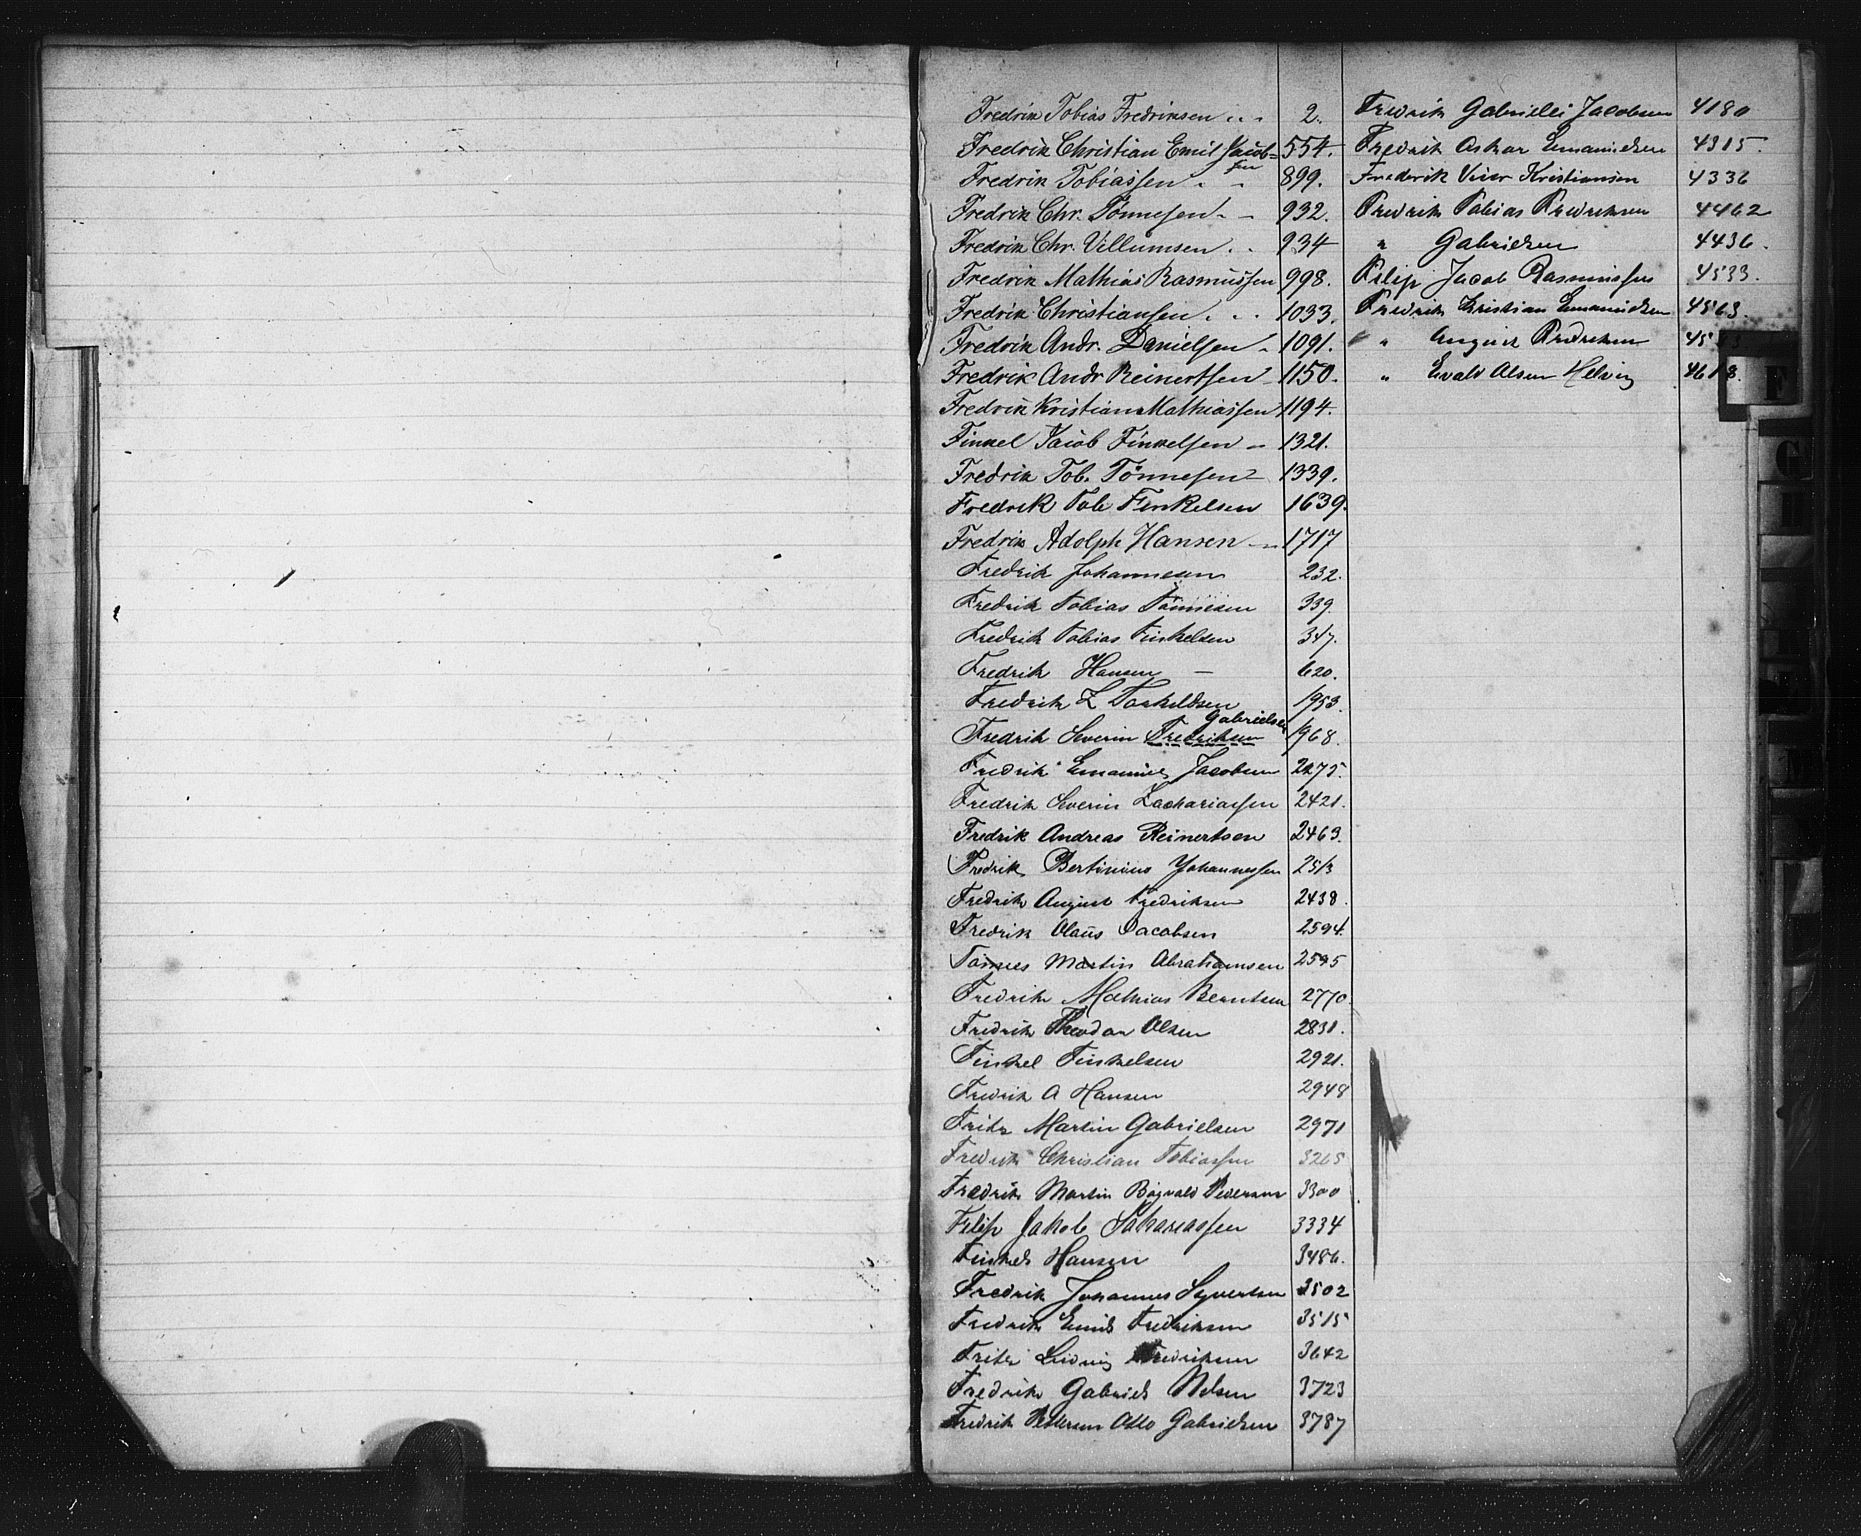 Fredrik Tobias Fredriksen 2.
Fredrik Christian Emil Jacobsen 554.
Fredrik Tobiassen 899.
Fredrik Chr. Tønnesen 932.
Fredrik Chr. Villumsen 934
Fredrik Mathias Rasmussen 998.
Fredrik Christiansen 1033.
Fredrik Andr. Danielsen 1091.
Fredrik Andr Reinertsen 1150.
Fredrik Kristian Mathiassen 1194.
Finkel Jacob Finkelsen 1321.
Fredrik Tob. Tönnesen 1339.
Fredrik Tob Finkelsen 1639.
Fredrik Adolph Hansen 1717
Fredrik Johannesen 232.
Fredrik Tobias Tönnesen 339.
Fredrik Tobias Finkelsen 347.
Fredrik Hansen 620.
Fredrik L Torkildsen 1953.
Gabrielsen
Fredrik Severin Fredriksen 1968.
Fredrik Emanuel Jacobsen 2275.
Fredrik Severin Zachariassen 2421.
Fredrik Andreas Reinertsen 2463.
Fredrik Bertinius Johannessen 2513
Fredrik August Fredriksen 2438.
Fredrik Olaus Jacobsen 2594.
Tønnes Martin Abrahamsen 2595
Fredrik Mathias Berntsen 2770.
Fredrik Theodor Olsen 2831.
Finkel Finkelsen 2921.
Fredrik A Hansen 2948
Fritz Martin Gabrielsen 2971
Fredrik Christian Tobiassen 3265
Fredrik Martin Pedersen 3300
Filip Jakob Sakariassen 3334
Finkel Hansen 3486.
Fredrik Johannes Syvertsen 3502
Fredrik Emil Fredriksen 3515
Fritz Ludvig Fredriksen 3642
Fredrik Gabriel Nilsen 3723
Fredrik Otto Gabrielsen 3787
Fredrik Gabriel Jacobsen 4180
Fredrik Oskar Emanuelsen 4315.
Frederik Kristiansen 4336
Fredrik Tobias Fredriksen 4462
" Gabrielsen 4436.
Filip Jacob Rasmussen 4533.
Fredrik Kristian Emanuelsen 4563.
" August Fredriksen
" Evald Olsen 4618.
F
G